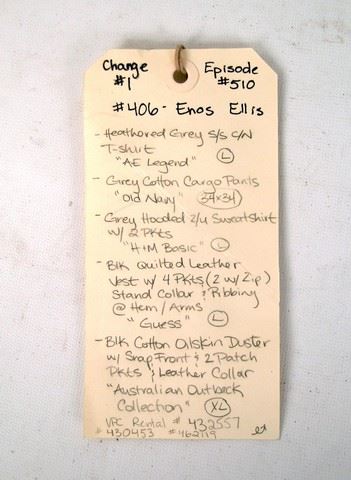 Change Episode
#1 #510
#406 - Enos Ellis
- Heathered Grey S/S C/N
T-shirt
"AE Legend" L
- Grey Cotton Cargo Pants
"Old Navy" 34x34
- Grey Hooded Z/U Sweatshirt
w/ 2 Pkts
"H+M Basic" L
- Blk Quilted Leather
Vest w/ 4 Pkts (2 w/ Zip)
Stand Collar & Ribbing
@ Hem / Arms
"Guess" L
- Blk Cotton Oilskin Duster
w/ Snap Front & 2 Patch
Pkts & Leather Collar
"Australian Outback
Collection" XL
VPC Rental # 432557
#430453 #462719